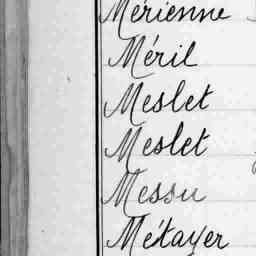 Mérienne
Méril
Meslet
Meslet
Messu
Métayer